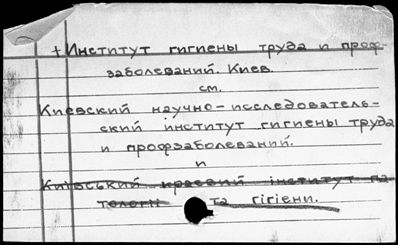 + Институт гигиены труда и проф-
заболеваний. Киев.
см.
Киевский научно-исследователь-
ский институт гигиены труда
и профзаболеваний.
и
Київський краевий інститут па
тологіі та гігіени.